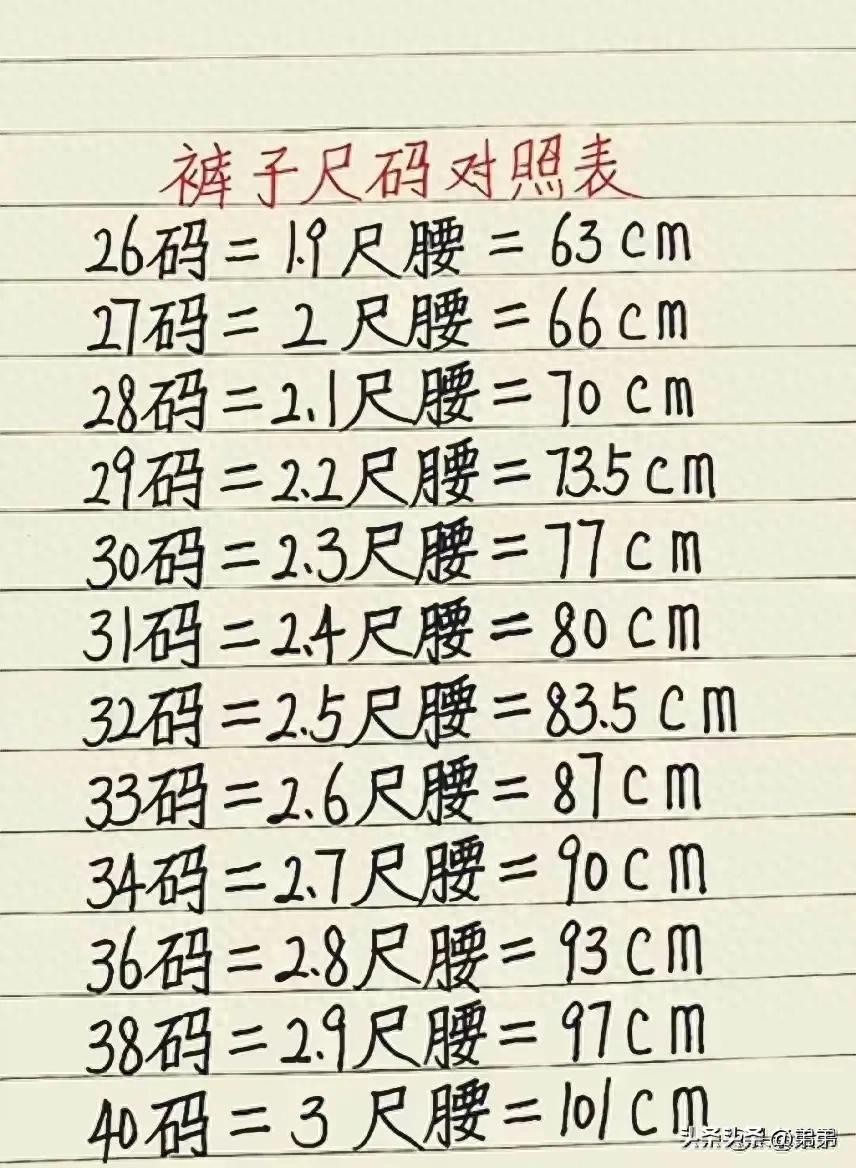 裤子尺码对照表
26码=1.9尺腰=63cm
27码=2尺腰=66cm
28码=2.1尺腰=70cm
29码=2.2尺腰=73.5cm
30码=2.3尺腰=77cm
31码=2.4尺腰=80cm
32码=2.5尺腰=83.5cm
33码=2.6尺腰=87cm
34码=2.7尺腰=90cm
36码=2.8尺腰=93cm
38码=2.9尺腰=97cm
40码=3尺腰=101cm
头条 @弟弟